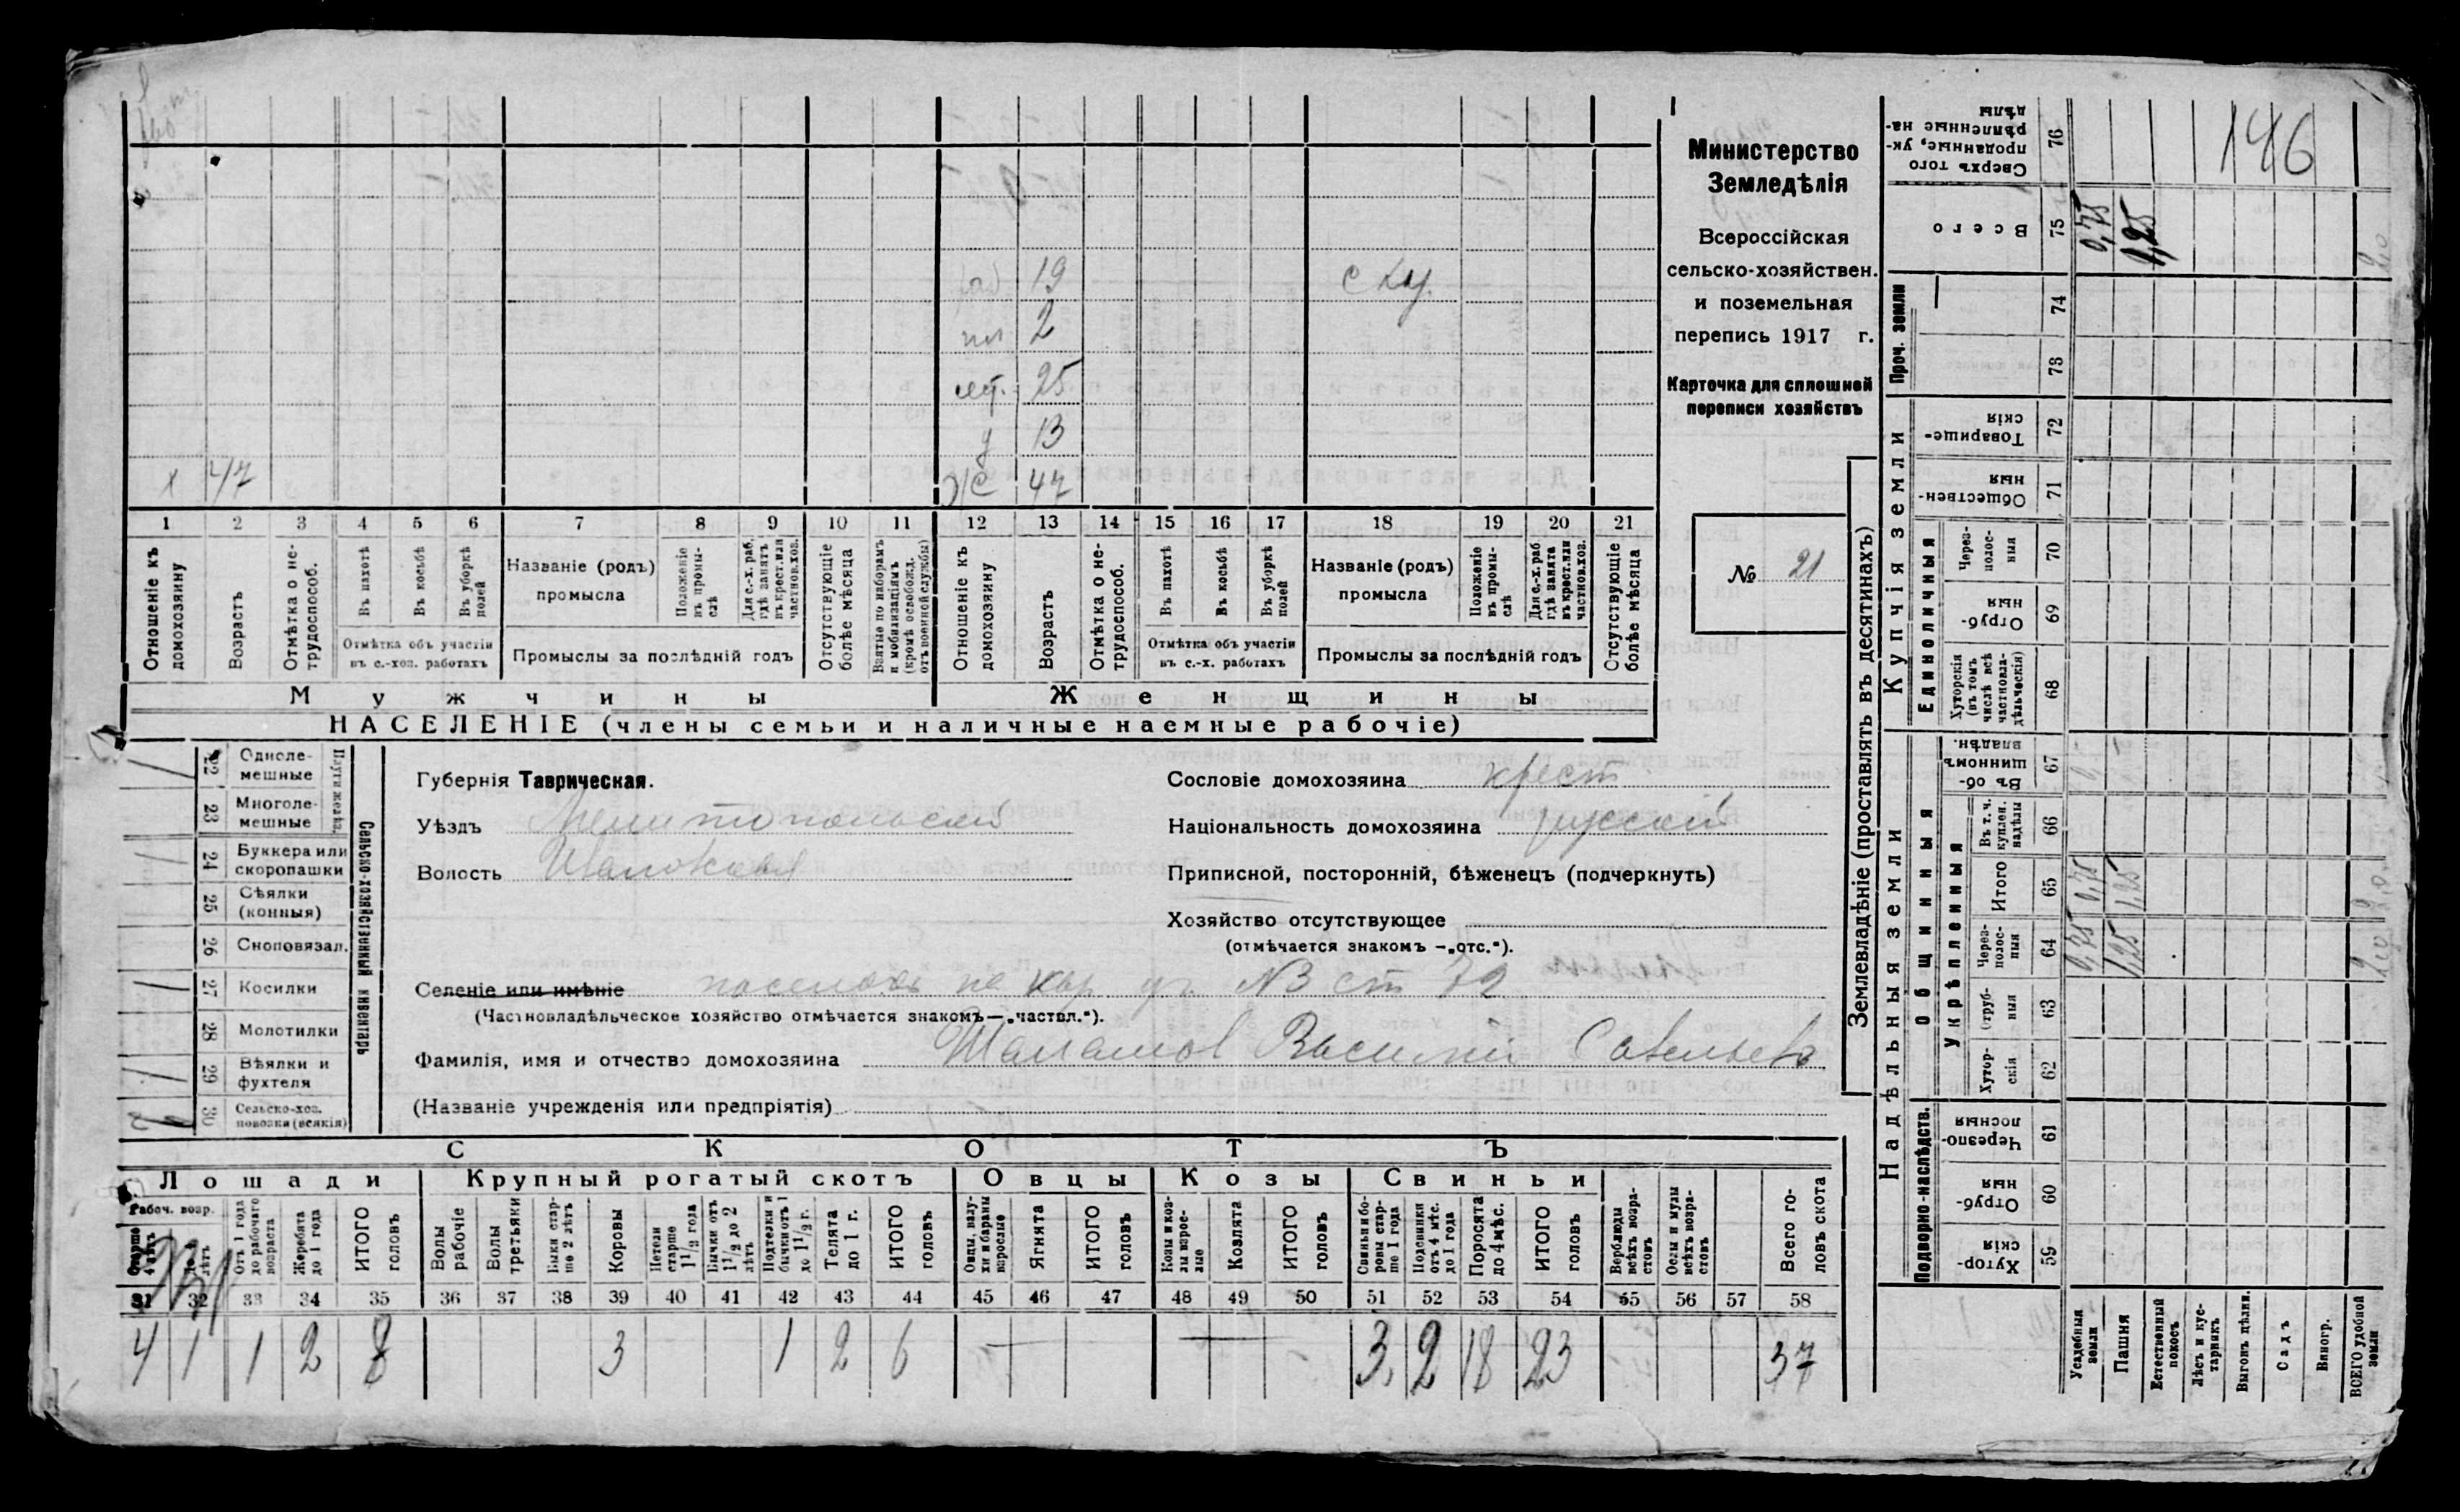 146
Министерство
Земледѣлія
Всероссійская
сельско-хозяйствен.
и поземельная
перепись 1917 г.
Карточка для сплошной
переписи хозяйствъ
№ 21
19 с ку.
2
25
д 13
х 47 ж 47
1 2 3 4 5 6 7 8 9 10 11 12 13 14 15 16 17 18 19 20 21
Отношеніе къ домохозяину
Возрастъ
Отмѣтка о не-трудоспособ.
Въ пахотѣ
Въ косьбѣ
Въ уборкѣ полей
Отмѣтка объ участіи
въ с.-хоз. работахъ
Названіе (родъ)
промысла
Положеніе въ промы-слѣ
Для с.-х. раб. гдѣ занятъ въ крест. или частнов. хоз.
Промыслы за послѣдній годъ
Отсутствующіе болѣе мѣсяца
Взятые по наборамъ и мобилизаціямъ (кромѣ освобожд. отъ военной службы)
Отношеніе къ домохозяину
Возрастъ
Отмѣтка о не-трудоспособ.
Въ пахотѣ
Въ косьбѣ
Въ уборкѣ полей
Отмѣтка объ участіи
въ с.-х. работахъ
Названіе (родъ)
промысла
Положеніе въ промы-слѣ
Для с.-х. раб. гдѣ занята въ крест. или частнов. хоз.
Промыслы за послѣдній годъ
Отсутствующіе болѣе мѣсяца
Мужчины Женщины
НАСЕЛЕНІЕ (члены семьи и наличные наемные рабочіе)
Сельско-хозяйственный инвентарь
22 Одноле-мешные
23 Многоле-мешные
24 Буккера или скоропашки
25 Сѣялки (конныя)
26 Сноповязал.
27 Косилки
28 Молотилки
29 Вѣялки и фухтеля
30 Сельско-хоз. повозки (всякія)
Губернія Таврическая.
Уѣздъ Мелитопольскій
Волость Ивановская
Сословіе домохозяина крест
Національность домохозяина русскій
Приписной, посторонній, бѣженецъ (подчеркнуть)
Хозяйство отсутствующее
(отмѣчается знакомъ —„отс.“).
Селеніе или имѣніе поселокъ на кар уч. №3 ст 72
(Частновладѣльческое хозяйство отмѣчается знакомъ—„частвл.“).
Фамилія, имя и отчество домохозяина Шаламов Василий Савельевъ
(Названіе учрежденія или предпріятія)
СКОТЪ
Лошади Крупный рогатый скотъ Овцы Козы Свиньи
Рабоч. возр.
Старше 4 лѣтъ
Отъ 1 года до рабочаго возраста
Жеребята до 1 года
ИТОГО головъ
Волы рабочіе
Волы третьяки
Быки стар-ше 2 лѣтъ
Коровы
Нетели старше 1 1/2 года
Бычки отъ 1 1/2 до 2 лѣтъ
Подтелки и бычки отъ 1 до 1 1/2 г.
Телята до 1 г.
ИТОГО головъ
Овцы, валу-хи и бараны взрослые
Ягнята
ИТОГО головъ
Козы и коз-лы взрос-лые
Козлята
ИТОГО головъ
Свиньи и бо-ровы стар-ше 1 года
Подсвинки отъ 4 мѣс. до 1 года
Поросята до 4 мѣс.
ИТОГО головъ
Верблюды всѣхъ возра-стовъ
Ослы и мулы всѣхъ возра-стовъ
Всего го-ловъ скота
31 32 33 34 35 36 37 38 39 40 41 42 43 44 45 46 47 48 49 50 51 52 53 54 55 56 57 58
4 1 1 2 8 3 1 2 6 — — 3 2 18 23 37
Землевладѣніе (проставлять въ десятинахъ)
Надѣльныя земли
Купчія земли
Проч. земли
Подворно-наслѣдств.
Общинныя
Укрѣпленныя
Единоличныя
Хутор-скія 59
Отруб-ныя 60
Черезпо-лосныя 61
Хутор-скія 62
Отруб-ныя 63
Через-полос-ныя 64 0,75 1,25 2,0
Итого 65 0,75 1,25 2,0
Въ т. ч. куплен. надѣлы 66
Въ об-щинномъ владѣн. 67
Хуторскія (въ томъ числѣ всѣ частновла-дѣльческія) 68
Отруб-ныя 69
Через-полос-ныя 70
Обществен-ныя 71
Товарище-скія 72
73
74
Всего 75 0,75 1,25 2,0
Сверхъ того проданные, ук-рѣпленные на-дѣлы 76
Усадебныя земли
Пашня
Естественный покосъ
Лѣсъ и кус-тарникъ
Выгонъ цѣлин.
Садъ
Виногр.
ВСЕГО удобной земли